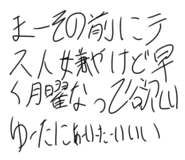 まーその前にテ
スト嫌やけど早
く月曜なって欲しい
ゆーたにあいたいいいい